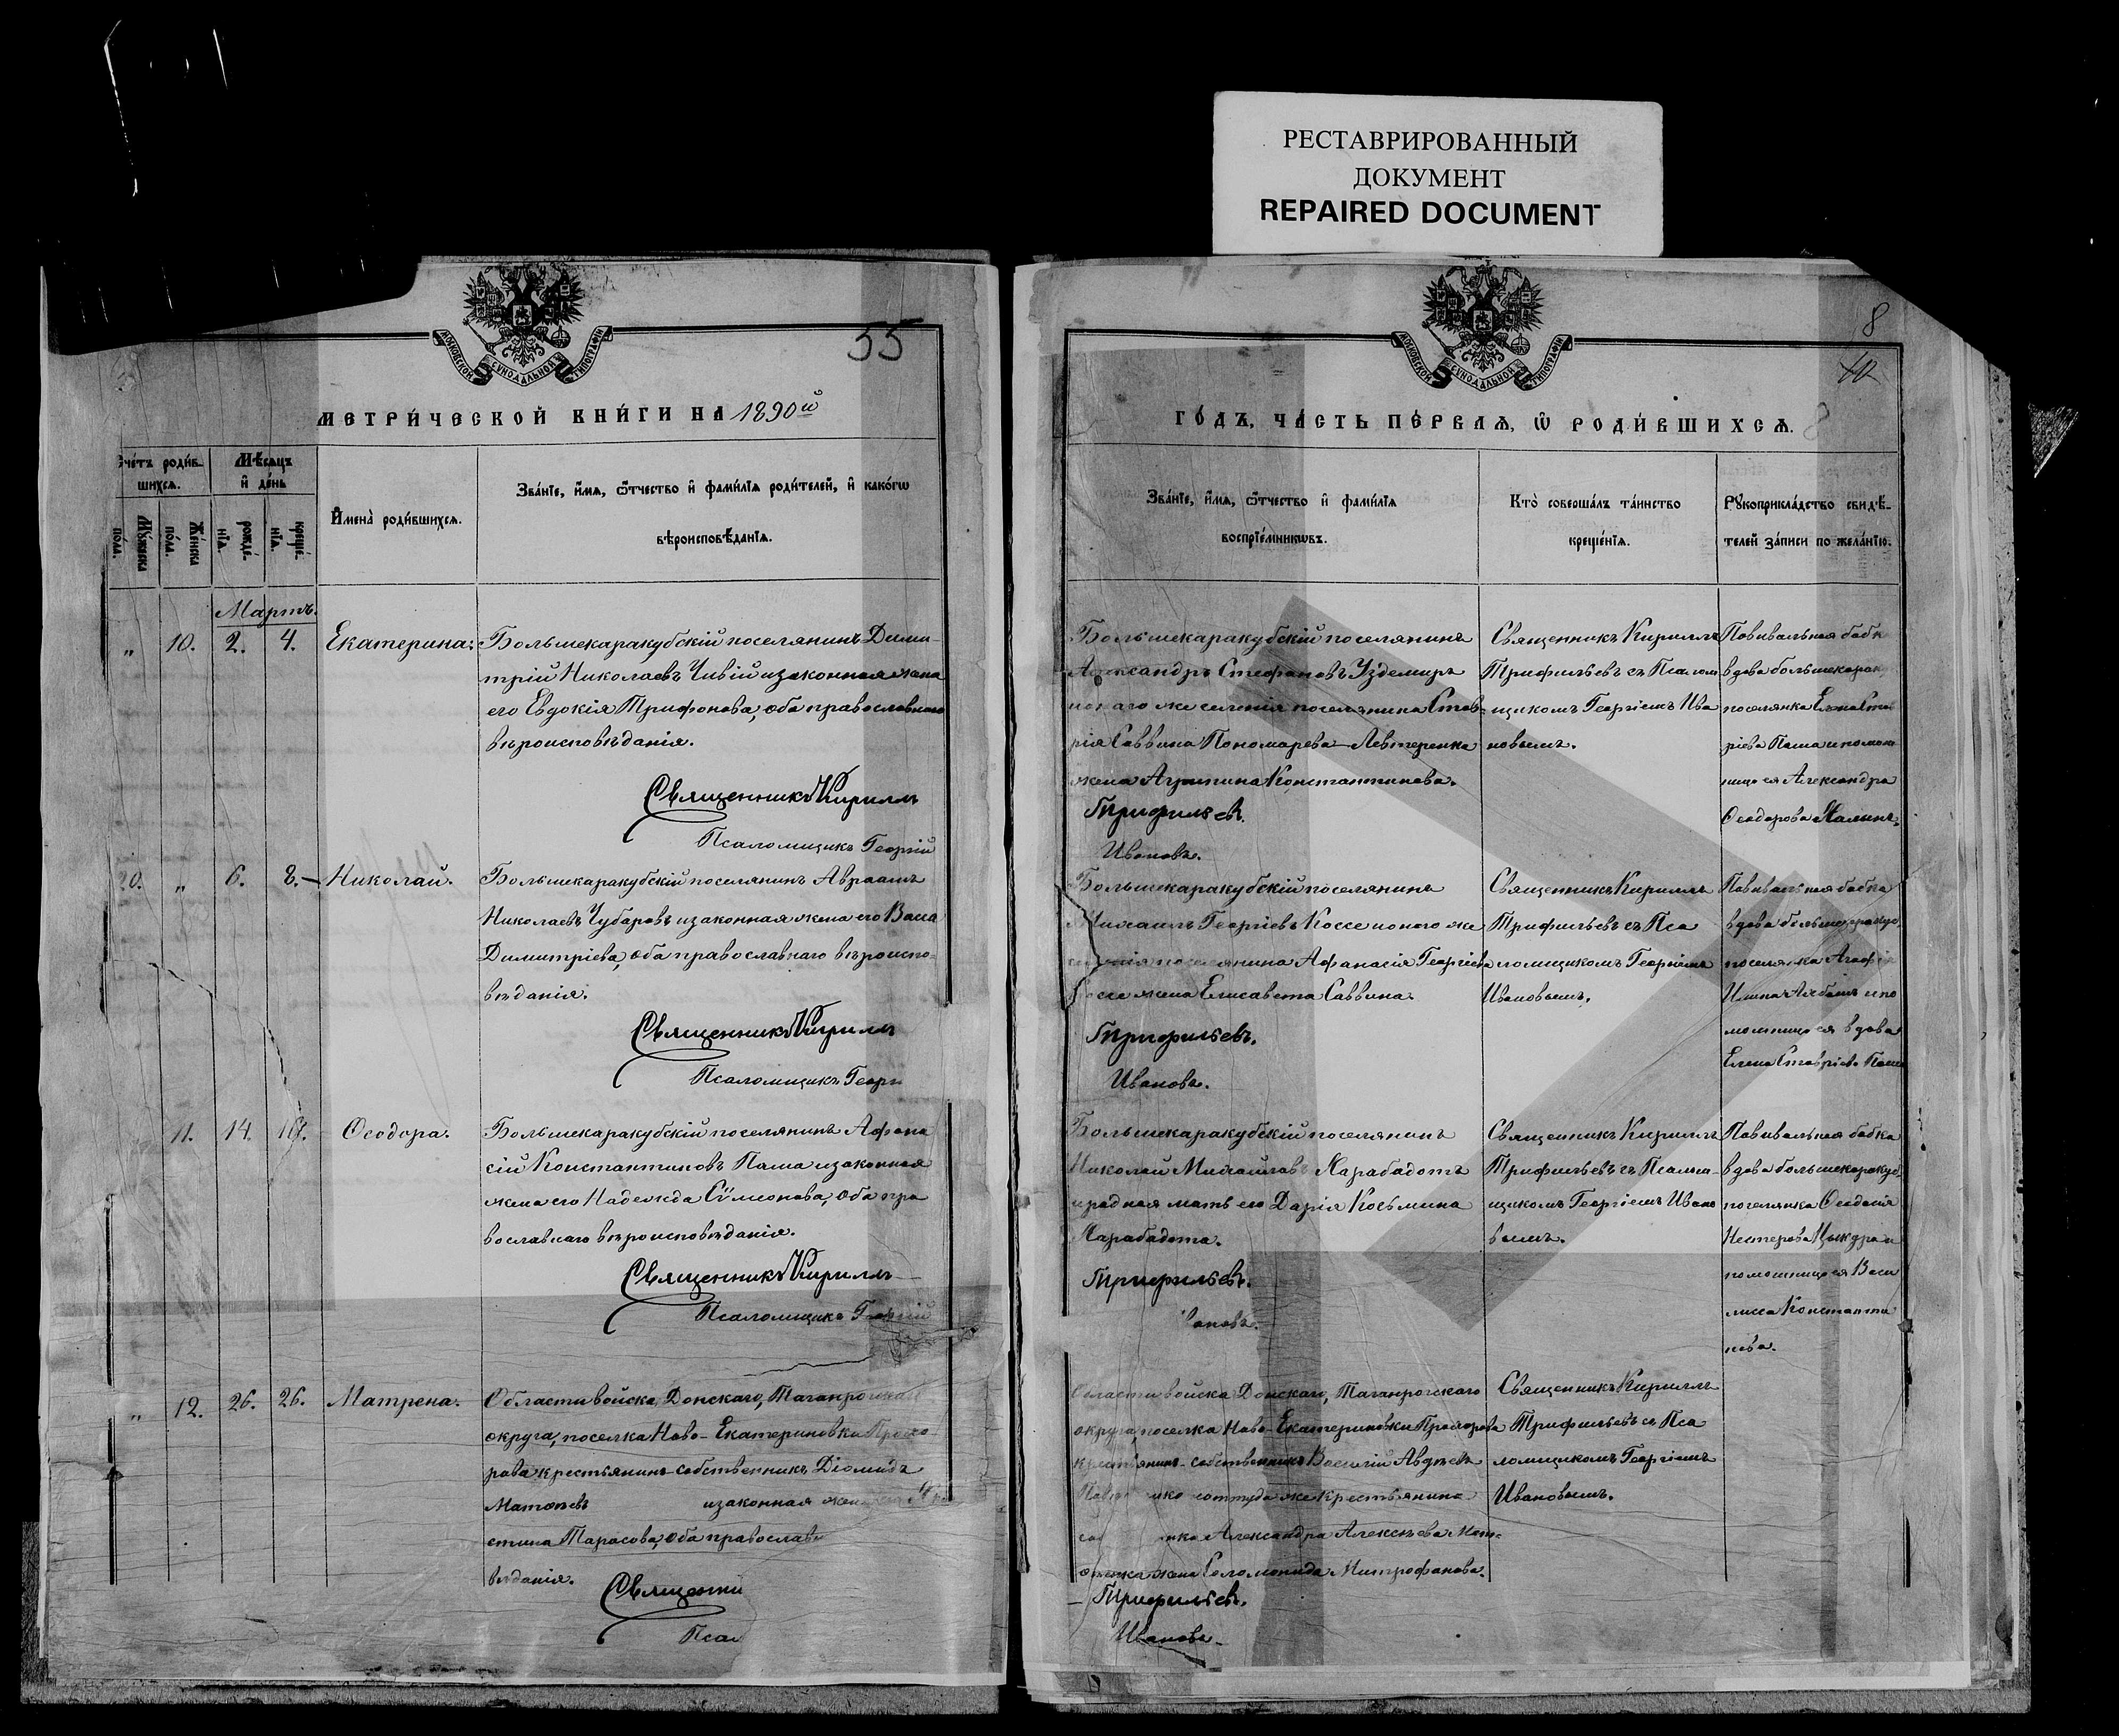 РЕСТАВРИРОВАННЫЙ
ДОКУМЕНТ
REPAIRED DOCUMENT
МОСКОВСКОЙ СѴНОДАЛЬНОЙ ТИПОГРАФІИ
55
МЕТРИ́ЧЕСКОЙ КНИ́ГИ НА 1890й
Счетъ роди́в-
шихсѧ.
Мѣсѧцъ
и҆ де́нь
Мꙋжеска по́ла.
Же́нска по́ла.
рожде́-
нїѧ.
креще́-
нїѧ.
И҆мена̀ роди́вшихсѧ.
Зва́нїе, и҆́мѧ, ѻ҆́тчество и҆ фами́лїѧ роди́телей, и҆ како́гѡ
вѣроисповѣ́данїѧ.
Мартъ.
„ 10. 2. 4. Екатерина.
Большекаракубскій поселянинъ Дими-
трій Николаевъ Чивій и законная жена
его Евдокія Трифонова, оба православнаго
вѣроисповѣданія.
Священникъ Кириллъ
Псаломщикъ Георгій
20. „ 6. 8. Николай.
Большекаракубскій поселянинъ Авраамъ
Николаевъ Чубаровъ и законная жена его Васса
Димитріева, оба православнаго вѣроиспо-
вѣданія.
Священникъ Кириллъ
Псаломщикъ Георгі
11. 14. Ѳеодора.
Большекаракубскій поселянинъ Афана
сій Константиновъ Паша и законная
жена его Надежда Сѵмеонова, оба пра
вославнаго вѣроисповѣданія.
Священникъ Кириллъ
Псаломщикъ Георгій
„ 12. 26. 26. Матрена.
Области войска Донскаго, Таганрогскаго
округа, поселка Ново-Екатериновки Прохо-
рова крестьянинъ-собственникъ Діомидъ
Матвѣевъ и законная жена
стина Тарасова, оба православ
вѣданія.
Священни
Псал
МОСКОВСКОЙ СѴНОДАЛЬНОЙ ТИПОГРАФІИ
8
10
ГО́ДЪ, ЧА́СТЬ ПЕ́РВАѦ, Ѡ҆ РОДИ́ВШИХСѦ.
8
Зва́нїе, и҆́мѧ, ѻ҆́тчество и҆ фами́лїѧ
воспрїе́мникѡвъ.
Кто̀ соверша́лъ та́инство
креще́нїѧ.
Рꙋкоприкла́дство свидѣ́-
телей за́писи по жела́нїю.
Большекаракубскій поселянинъ
Александръ Стефановъ Уздемиръ
и онаго же селенія поселянина Став-
рія Саввина Пономарева-Левтеренка
жена Агрипина Константинова.
Трифильевъ.
Ивановъ.
Священникъ Кириллъ
Трифильевъ съ Псалом
щикомъ Георгіемъ Ива
новымъ.
Повивальная бабк
вдова большекарак
поселянка Елена Став
ріева Паша и помощ
ница ея Александра
Ѳеодорова
Большекаракубскій поселянинъ
Михаилъ Георгіевъ Коссе и оного же
селенія поселянина Афанасія Георгіева
Коссе жена Елисавета Саввина.
Трифильевъ.
Ивановъ.
Священникъ Кириллъ
Трифильевъ съ Пса
ломщикомъ Георгіемъ
Ивановымъ.
Повивальная бабка
вдова большекаракуб.
поселянка Агафія
и по
мощница ея вдова
Елена Ставріева Паша
Большекаракубскій поселянинъ
Николай Михайловъ Харабадотъ
и родная мать его Дарія Косьмина
Харабадота.
Трифильевъ.
вановъ.
Священникъ Кириллъ
Трифильевъ съ Псалом-
щикомъ Георгіемъ Ивано
вымъ.
Повивальная бабка
вдова большекаракуб.
поселянка Ѳеодосія
Нестерова
помощница ея Васи
лисса Константи
нова.
Области войска Донскаго, Таганрогскаго
округа, поселка Ново-Екатериновки Прохорова
крестьянинъ-собственникъ Василій Авдѣевъ
и оттуда же крестьянина
Александра Алексѣева
жена Соломонида Митрофанова.
Трифильевъ.
Ивановъ.
Священникъ Кириллъ
Трифильевъ съ Пса
ломщикомъ Георгіемъ
Ивановымъ.